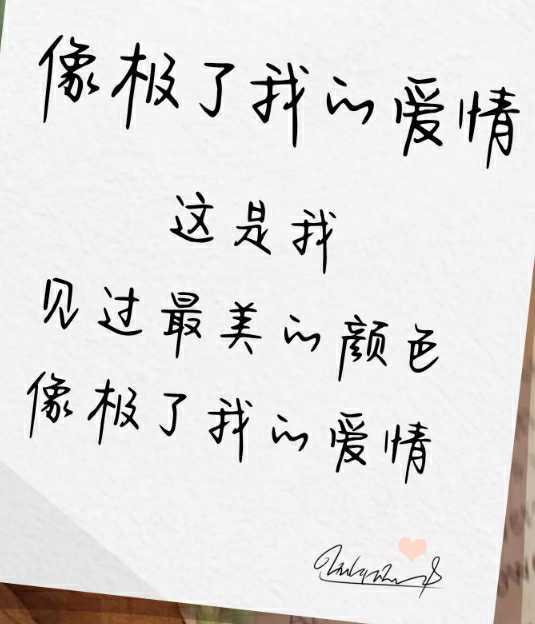 像极了我的爱情
这是我
见过最美的颜色
像极了我的爱情